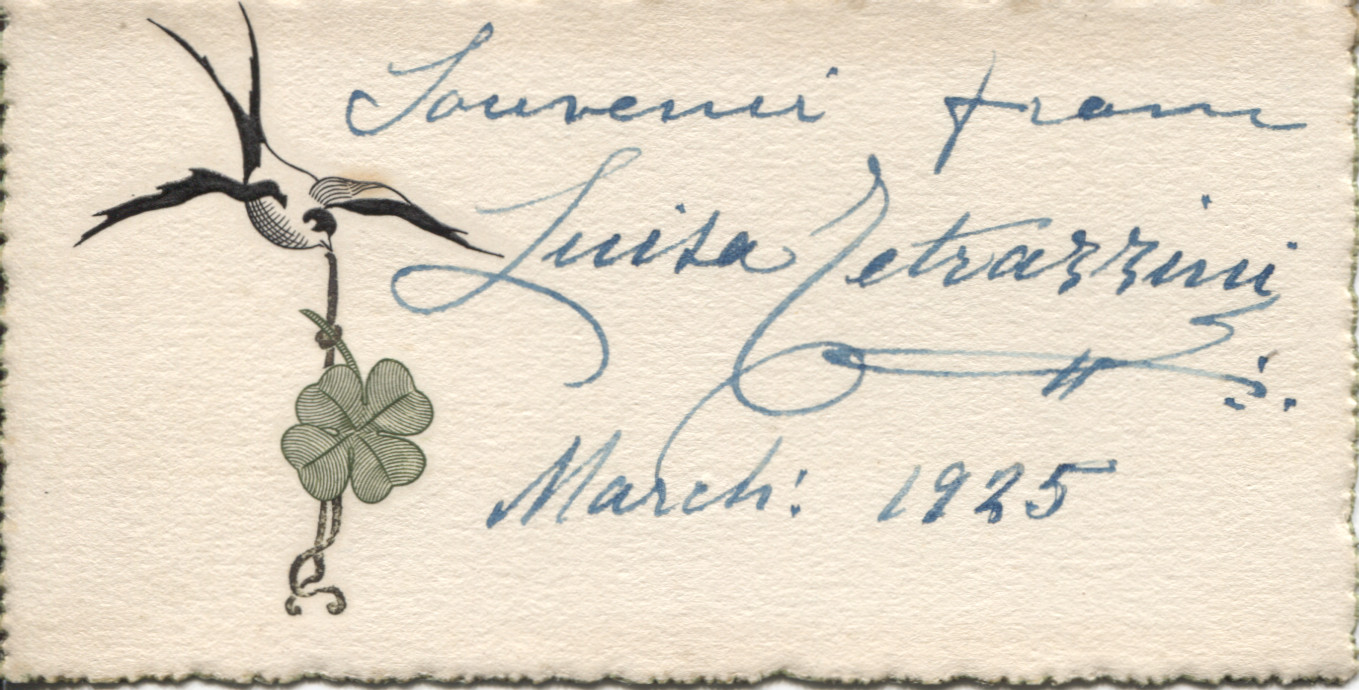 Souvenir from
Luisa Tetrazzini
March: 1925